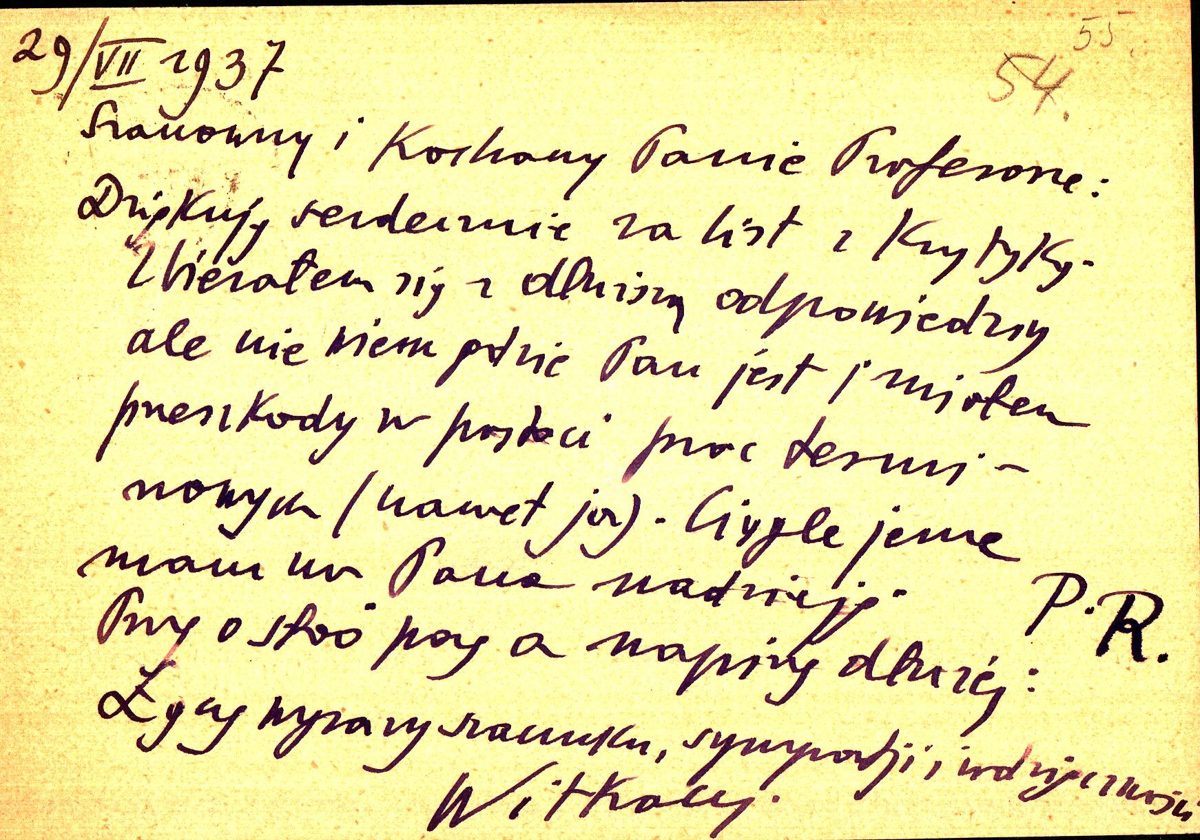 29/VII 1937
55.
54.
Szanowny i Kochany Panie Profesorze:
Dziękuję serdecznie za list z Krytyką.
Zbierałem się z dłuższą odpowiedzią
ale nie wiem gdzie Pan jest i miałem
przeszkody w postaci prac termi-
nowych (nawet ja). Ciągle jeszcze
mam na Pana nadzieję.
P.R.
Proszę o słówo parę a napiszę dłużej:
Łączę wyrazy szacunku, sympatji i wdzięczności
Witkacy.